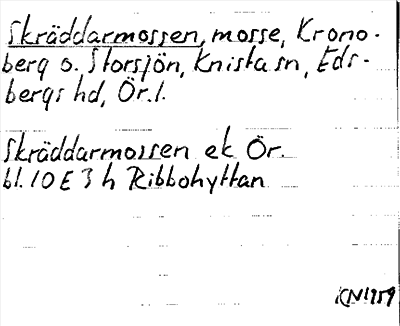 Skräddarmossen, mosse, Krono-
berg o. Storsjön, Knista sn, Eds-
bergs hd, Ör.l.
Skräddarmossen ek Ör.
bl. 10 E 3 h Ribbohyttan
KN 1959